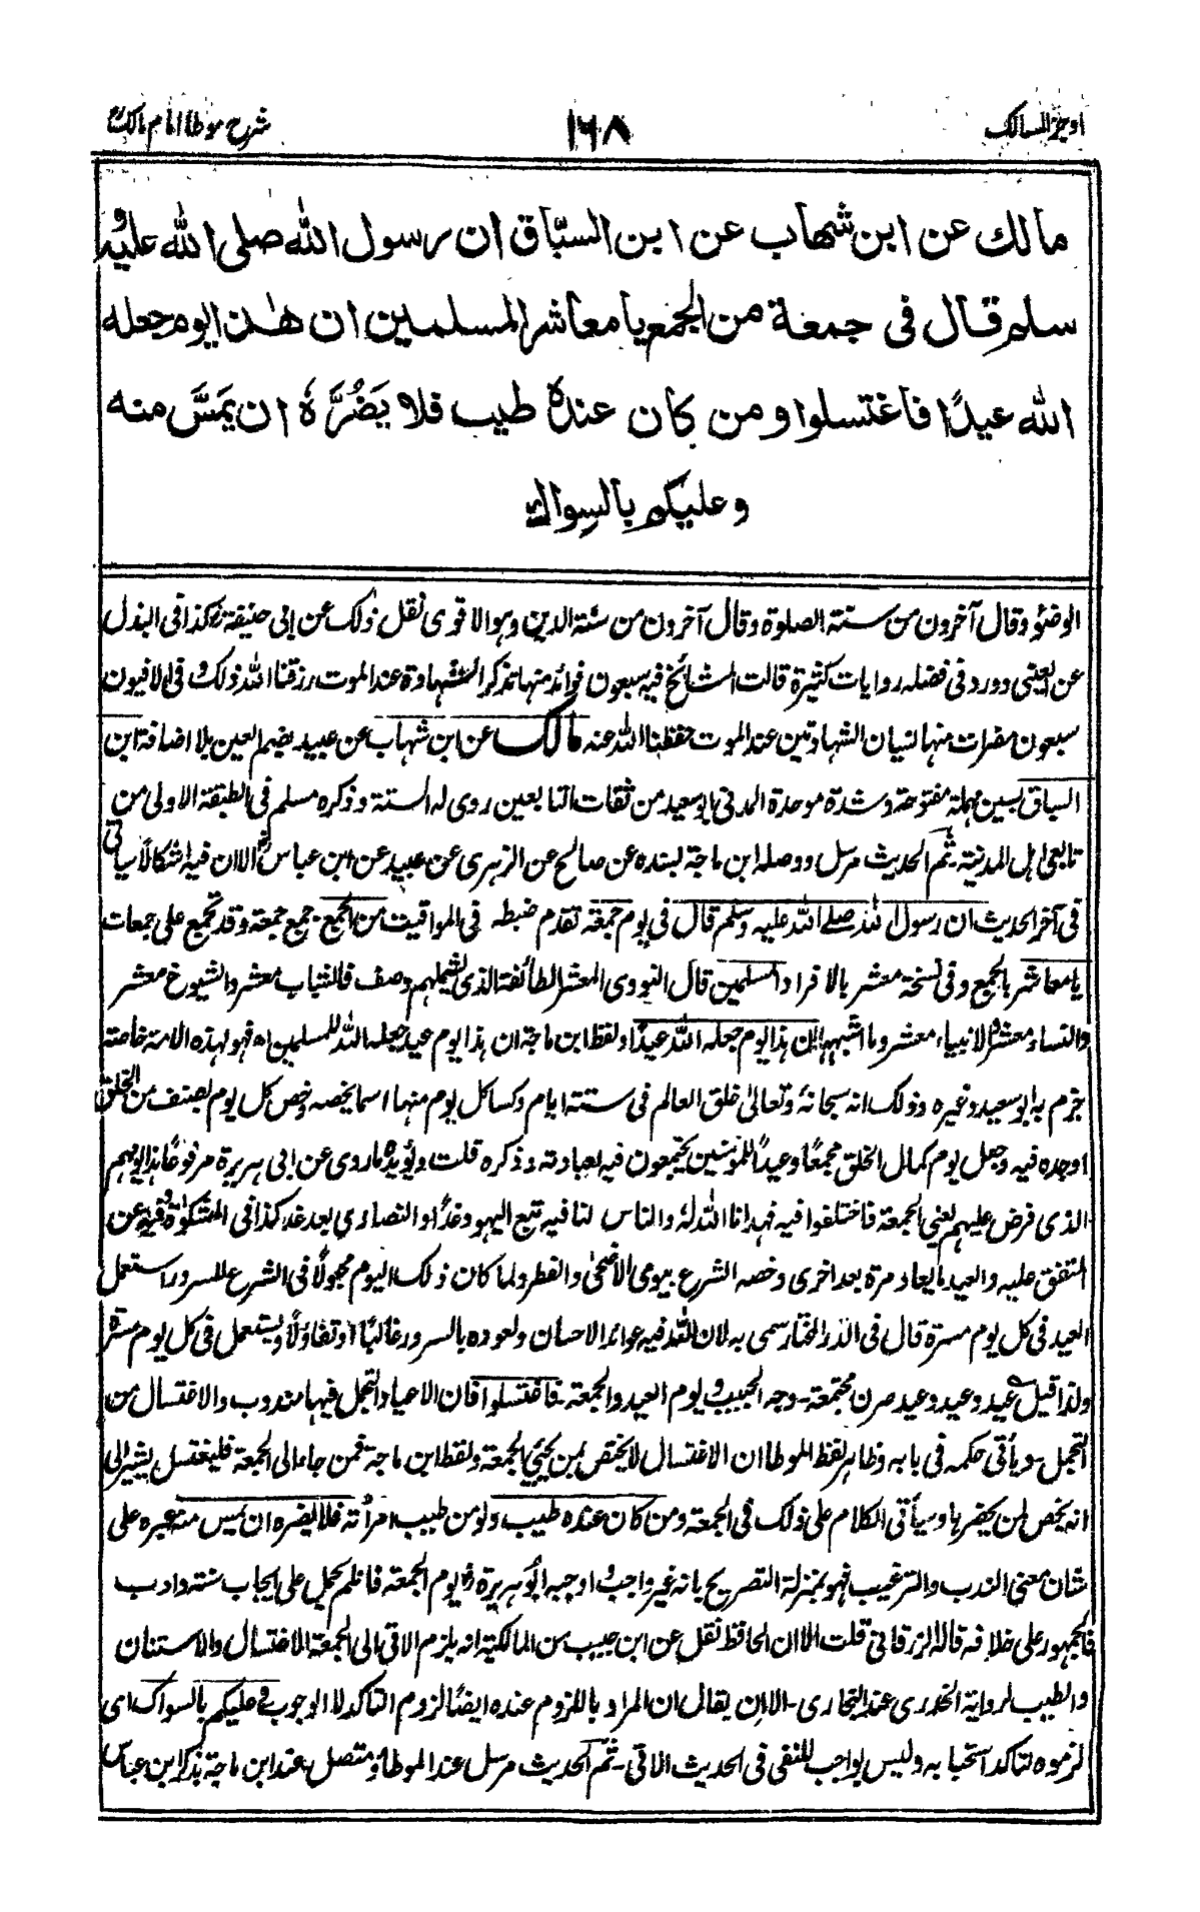 اوجز المسالك ١٦٨ شرح موطا امام مالك
مالك عن ابن شهاب عن ابن السبّاق ان رسول الله صلى الله عليه و
سلم قال فى جمعة من الجمع يا معاشر المسلمين ان هٰذا يوم جعله
الله عيدًا فاغتسلوا ومن كان عنده طيب فلا يَضُرُّهٗ ان يَمَسَّ منه
وعليكم بالسواك
الوضوء وقال آخرون من سنة الصلوة وقال آخرون من سنة الدين وهو الاقوى نقل ذلك عن ابى حنيفة كذا فى البذل
عن العينى وورد فى فضله روايات كثيرة قالت المشائخ فيه سبعون فوائد منها تذكر الشهادة عند الموت رزقنا الله ذلك وفى الافيون
سبعون مضرات منها نسيان الشهادتين عند الموت حفظنا الله عنه مالك عن ابن شهاب عن عبيد بضم العين بلا اضافة ابن
السباق بسين مهملة مفتوحة وشدة موحدة المدنى ابو سعيد من ثقات التابعين روى له الستة وذكره مسلم فى الطبقة الاولى من
تابعى اهل المدينة ثم الحديث مرسل ووصله ابن ماجة بسنده عن صالح عن الزهرى عن عبيد عن ابن عباس الا ان فيه اشكالا سياتى
فى آخر الحديث ان رسول الله صلى الله عليه وسلم قال فى يوم جمعة تقدم ضبطه فى المواقيت من الجمع جمع جمعة وقد تجمع على جمعات
يا معاشر بالجمع وفى نسخة معشر بالافراد المسلمين قال النووى المعشر الطائفة الذى يشملهم وصف فالشباب معشر والشيوخ معشر
والنساء معشر والانبياء معشر وما اشبهه ان هذا يوم جعله الله عيدًا ولفظ ابن ماجة ان هذا يوم عيد جعله الله للمسلمين اه فهو لهذه الامة خاصة
جزم به ابو سعيد وغيره وذلك انه سبحانه وتعالى خلق العالم فى ستة ايام وكسا كل يوم منها اسما يخصه وخص كل يوم بصنف من الخلق
اوجده فيه وجعل يوم كمال الخلق مجمعًا وعيدًا للمؤمنين يجتمعون فيه لعبادته وذكره قلت ويؤيده ما روى عن ابى هريرة مرفوعًا هذا يومهم
الذى فرض عليهم يعنى الجمعة فاختلفوا فيه فهدانا الله له والناس لنا فيه تبع اليهود غدًا والنصارى بعد غد كذا فى المشكوة وفيه عن
المتفق عليه والعيد ما يعاد مرة بعد اخرى وخصه الشرع بيومى الاضحى والفطر ولما كان ذلك اليوم مجعولًا فى الشرع للسرور استعمل
العيد فى كل يوم مسرة قال فى الدر المختار سمى به لان لله فيه عوائد الاحسان ولعوده بالسرور غالبًا او تفاؤلًا ويستعمل فى كل يوم مسرة
ولذا قيل عيد وعيد وعيد صرن مجتمعة - وجه الحبيب ويوم العيد والجمعة - فاغتسلوا فان الاعياد التجمل فيها مندوب والاغتسال من
التجمل - وياتى حكمه فى بابه وظاهر لفظ الموطا ان الاغتسال لا يختص بمن يجيئ الجمعة ولفظ ابن ماجة فمن جاء الى الجمعة فليغتسل يشير الى
انه يخص لمن يحضرها وسيأتى الكلام على ذلك فى الجمعة ومن كان عنده طيب ولو من طيب امرأته فلا يضره ان يمس منه عبره على
شان معنى الندب والترغيب فهو بمنزلة التصريح بانه غير واجب واوجبه ابو هريرة يوم الجمعة فاظلم يحمل على ايجاب سنة وادب
فالجمهور على خلافه قاله الزرقانى قلت الا ان الحافظ نقل عن ابن حبيب من المالكية انه يلزم الآتى الى الجمعة الاغتسال والاستنان
والطيب لرواية الخدرى عند البخارى - الا ان يقال ان المراد باللزوم عنده ايضًا لزوم التاكد لا الوجوب وعليكم بالسواك اى
لزموه لتاكد استحبابه وليس بواجب للنفى فى الحديث الآتى - ثم الحديث مرسل عند الموطا ومتصل عند ابن ماجة بذكر ابن عباس